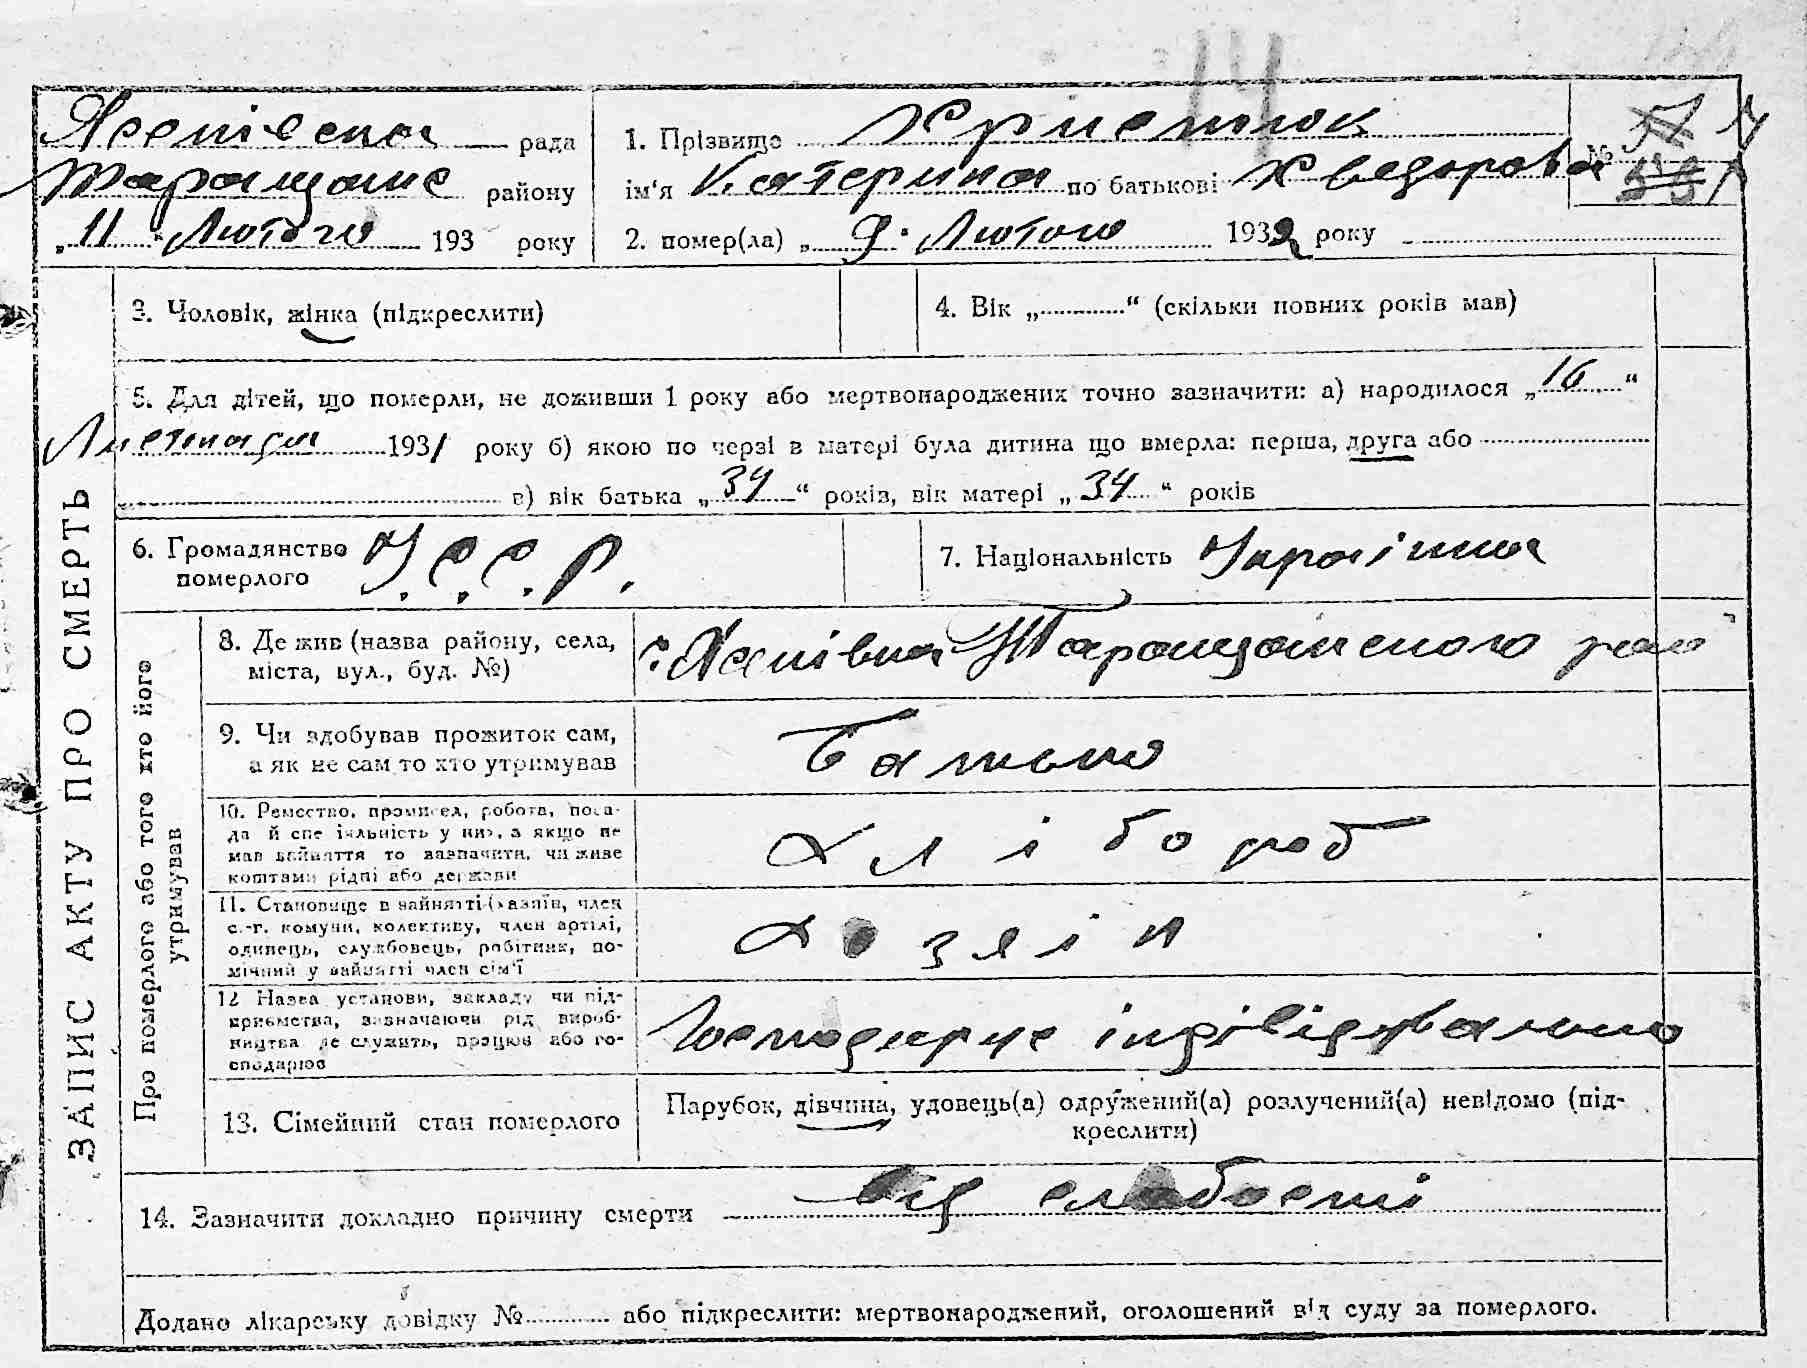 14
Лєспівська рада
Таращанс району
„ 11 “ Лютого 193 року
1. Прізвище Христюк
ім‘я Катерина по батькові Хведорова
2. помер(ла) „ 9 “ Лютого 1932 року
№
ЗАПИС АКТУ ПРО СМЕРТЬ
3. Чоловік, жінка (підкреслити)
4. Вік „............“ (скільки повних років мав)
5. Для дітей, що померли, не доживши 1 року або мертвонароджених точно зазначити: а) народилося „ 16 “
Листопада 1931 року б) якою по черзі в матері була дитина що вмерла: перша, друга або
в) вік батька „ 34 “ років, вік матері „ 34 “ років
6. Громадянство
померлого
У.С.С.Р.
7. Національність Українка
Про померлого або того хто його
утримував
8. Де жив (назва району, села,
міста, вул., буд. №)
Таращанского рай
9. Чи здобував прожиток сам,
а як не сам то хто утримував
Батько
10. Ремество, промисел, робота, поса-
да й спеціяльність у них, а якщо не
мав зайняття то зазначити, чи живе
коштами рідні або держави
Хлібороб
11. Становище в зайнятті (хазяїн, член
с.-г. комуни, колективу, член артілі,
одинець, службовець, робітник, по-
мічний у зайнятті член сім‘ї
Хозяін
12 Назва установи, закладу чи під-
приємства, зазначаючи рід вироб-
ництва де служить, працює або го-
сподарює
Господарує індівідувально
13. Сімейний стан померлого
Парубок, дівчина, удовець(а) одружений(а) розлучений(а) невідомо (під-
креслити)
14. Зазначити докладно причину смерти Від слабости
Додано лікарську довідку №............ або підкреслити: мертвонароджений, оголошений від суду за померлого.